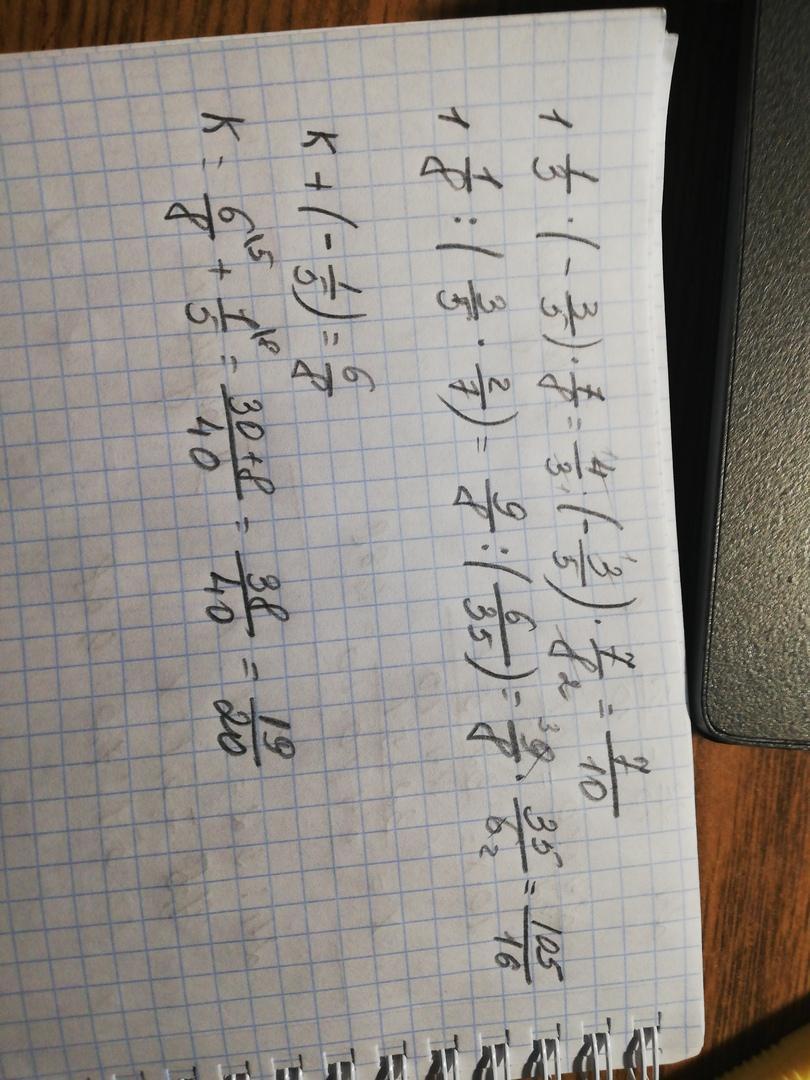 1 1/3 · (- 3/5) · 7/8 = 4/3 · (- 3/5) · 7/8₂ = 7/10
1 1/8 : (3/5 · 2/7) = 9/8 : (6/35) = ³9/8 · 35/6₂ = 105/16
K + (- 1/5) = 6/8
K = 6\5/8 + 1\8/5 = 30+8/40 = 38/40 = 19/20